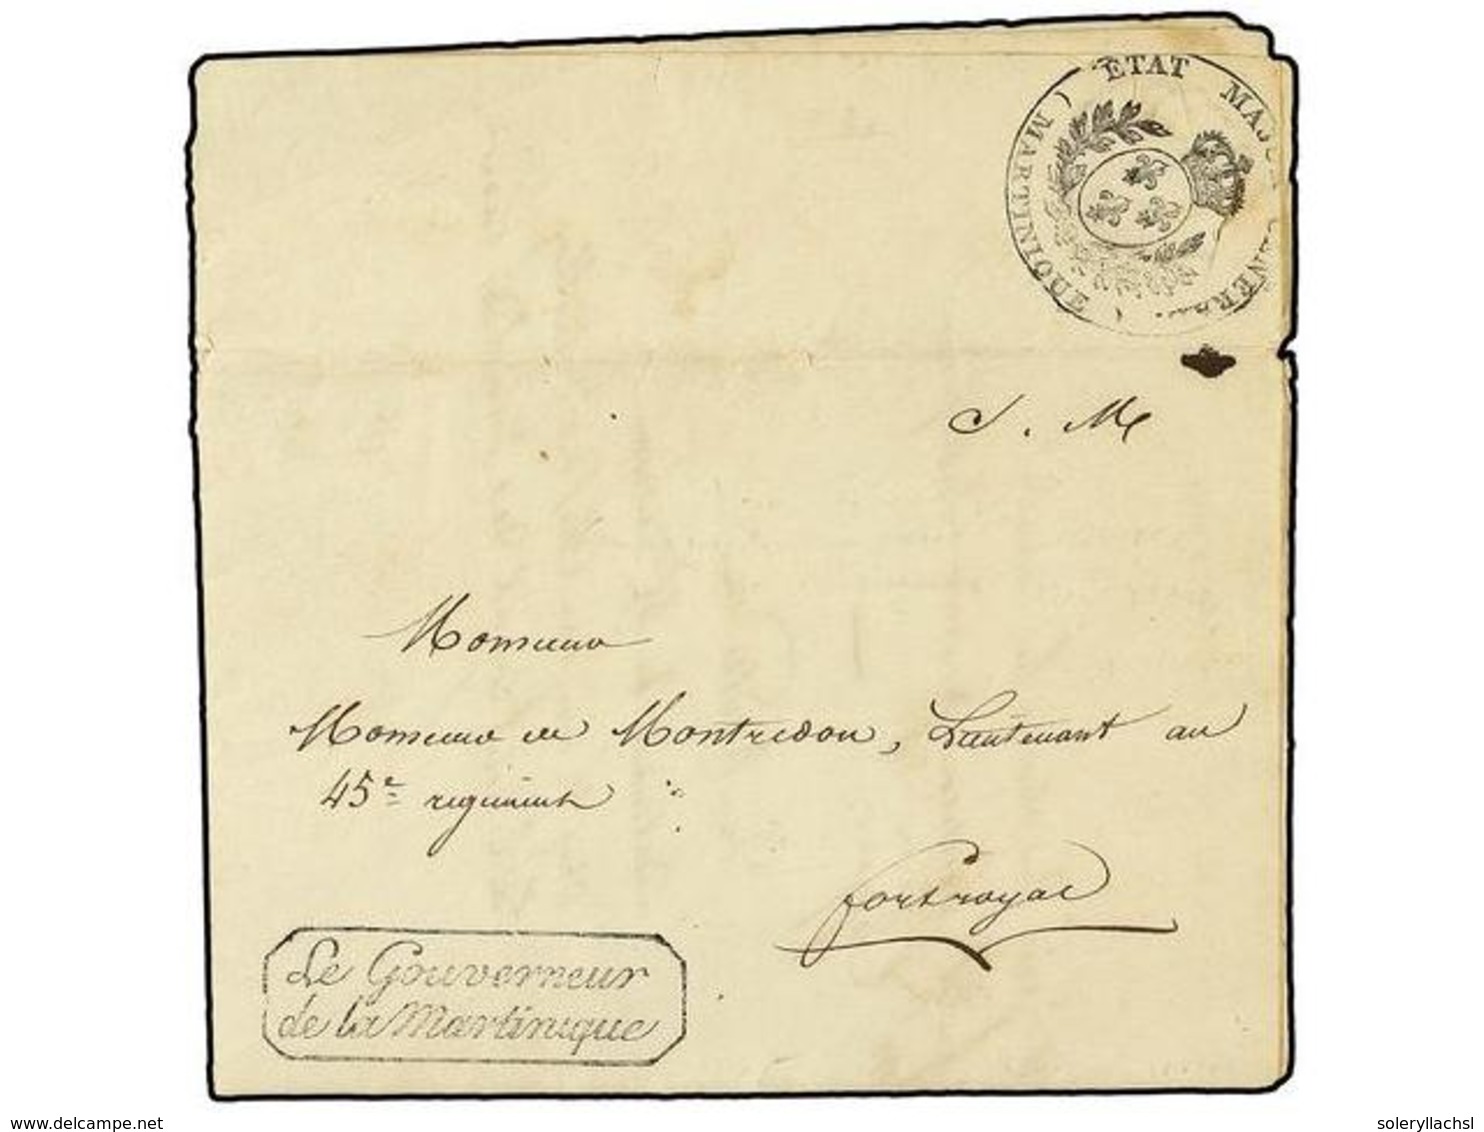 ETAT MAJOR GENERAL
( MARTINIQUE )
S. M
Monsieur
Monsieur de Montredon, Lieutenant au
45e regiment
fort royal
Le Gouverneur
de la Martinique
delcampe.net
soleryllachsl